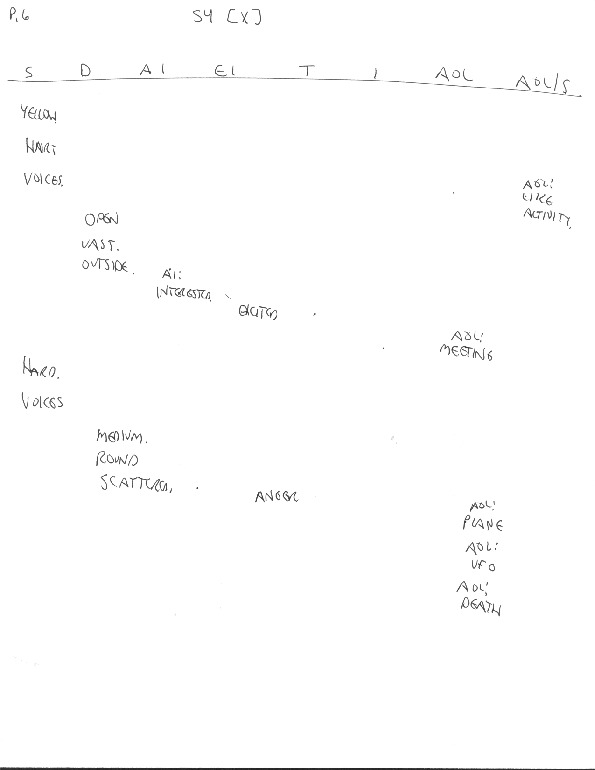 P.6 S4 [X]
S D AI EI T I AOL AOL/S
YELLOW
HART
VOICES. AOL:
LIKE
ACTIVITY.
OPEN
VAST.
OUTSIDE. AI:
INTERESTED
EXCITED
AOL:
MEETING
HARD.
VOICES
MEDIUM.
ROUND
SCATTERED, ANGER
AOL:
PLANE
AOL:
UFO
AOL:
DEATH